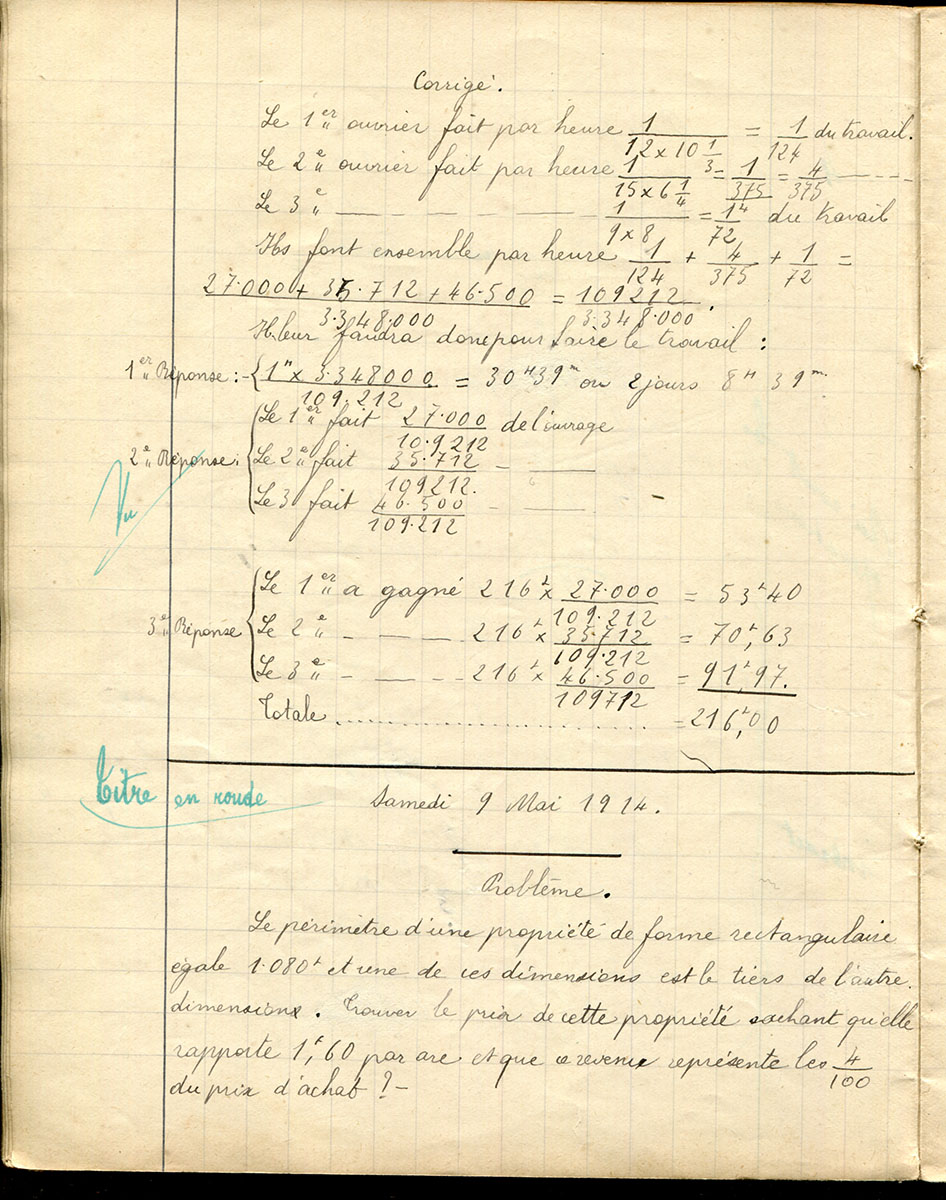 Corrigé.
Le 1er ouvrier fait par heure 1/(12 x 10 1/3) = 1/124 du travail.
Le 2e ouvrier fait par heure 1/(15 x 6 1/4) = 1/(375/4) = 4/375 - - - -
Le 3e — — — — — — 1/(9 x 8) = 1/72 du travail
Ils font ensemble par heure 1/124 + 4/375 + 1/72 =
(27.000 + 35.712 + 46.500)/3.348.000 = 109212/3.348.000.
Il leur faudra donc pour faire le travail :
1er Réponse : - { (1h x 3.348000)/109.212 = 30H 39m ou 2 jours 8H 39m
Le 1er fait 27.000/10.9212 de l'ouvrage
2e Réponse : { Le 2e fait 35.712/109212. - —
Le 3 fait 46.500/109.212 - —
Vu
Le 1er a gagné 216f x 27.000/109.212 = 53f40
3e Réponse { Le 2e - — — 216f x 35.712/109.212 = 70f,63
Le 3e - — — 216f x 46.500/109712 = 91f,97.
Totale .......................... = 216f,00
Titre en ronde
Samedi 9 Mai 1914.
Problême.
Le périmètre d'une propriété de forme rectangulaire
égale 1.080f et une de ces dimensions est le tiers de l'autre.
dimensions. Trouver le prix de cette propriété sachant qu'elle
rapporte 1f,60 par are et que ce revenu représente les 4/100
du prix d'achat ? -